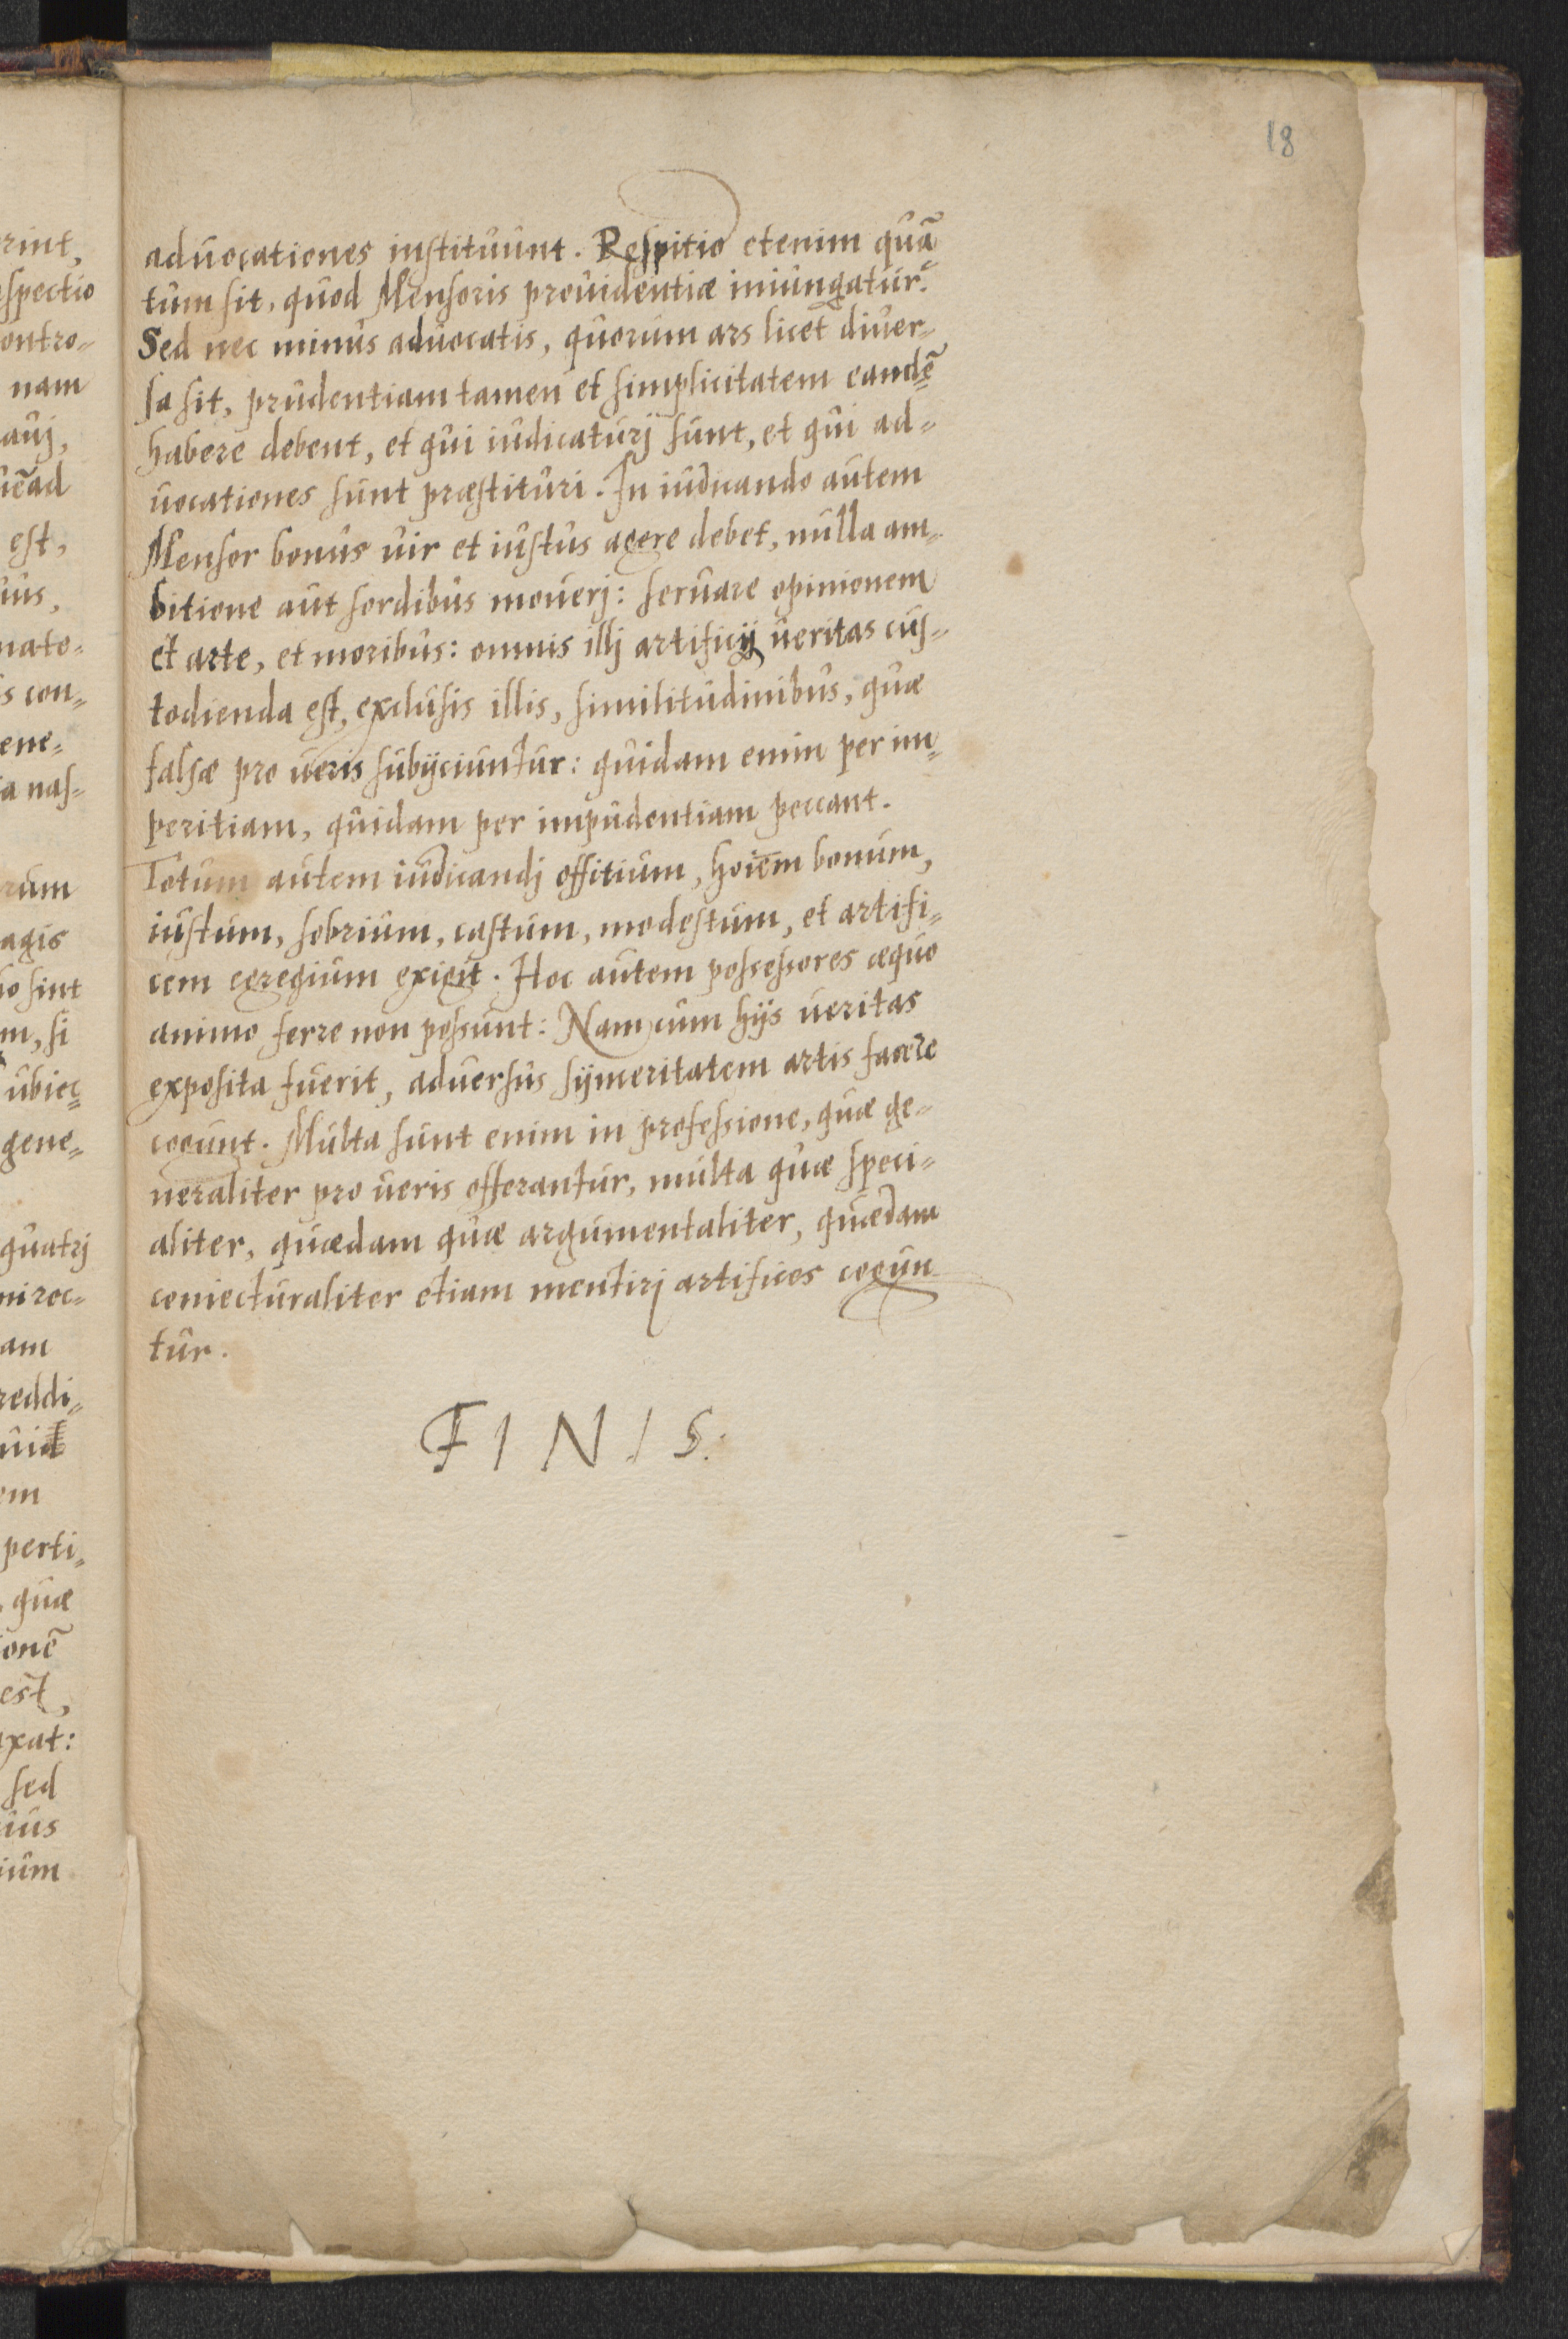 18
rint,
spectio
ontro=
nam
auj,
uẽ ad
est,
uus,
nato=
s con=
ene=
a nas=
rum
agis
io sint
m, si
ubiec=
gene=
quatrj
ni rec=
am
reddi=
uid
em
perti=
quæ
ionẽ
est,
axat:
sed
ius
ium
aduocationes instituunt. Respitio etenim quã
tum sit, quod Mensoris prouidentiæ iniungatur.
Sed nec minus aduocatis, quorum ars licet diuer=
sa sit, prudentiam tamen et simplicitatem eandẽ
habere debent, et qui iudicaturj sunt, et qui ad=
uocationes sunt præstituri. In iudicando autem
Mensor bonus uir et iustus agere debet, nulla am=
bitione aut sordibus mouerj: seruare opinionem
et arte, et moribus: omnis illj artificij ueritas cus=
todienda est, exclusis illis, similitudinibus, quæ
falsæ pro ueris subijciuntur: quidam enim per im=
peritiam, quidam per impudentiam peccant.
Totum autem iudicandj offitium, hoiem̃ bonum,
iustum, sobrium, castum, modestum, et artifi=
cem egregium exigit. Hoc autem possessores æquo
animo ferre non possunt: Nam cum hijs ueritas
exposita fuerit, aduersus sijnceritatem artis facere
cogunt. Multa sunt enim in professione, quæ ge=
neraliter pro ueris offerantur, multa quæ speci=
aliter, quædam quæ argumentaliter, quædam
coniecturaliter etiam mentirj artifices cogun
tur.
FINIS.